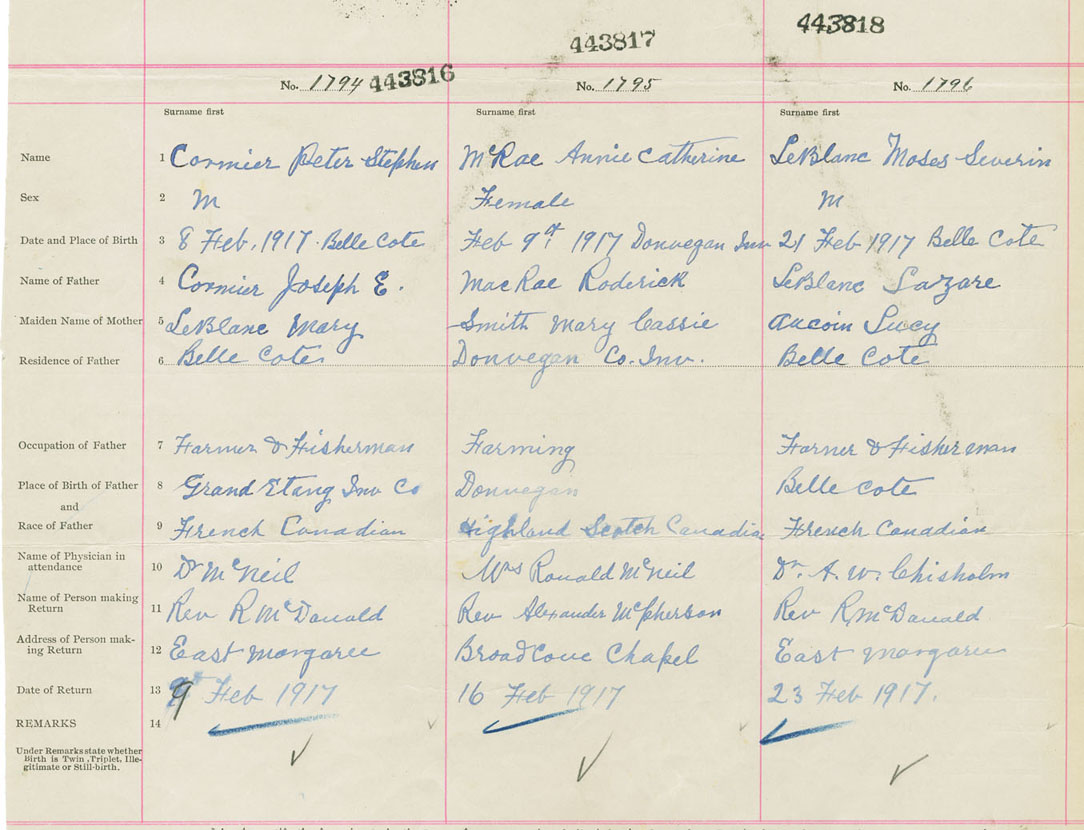 443817
443818
No. 1794 443816
No. 1795
No. 1796
Surname first
Surname first
Surname first
Name 1 Cormier Peter Stephen McRae Annie Catherine LeBlanc Moses Severin
Sex 2 M Female M
Date and Place of Birth 3 8 Feb. 1917. Belle Cote Feb 9th 1917 Donvegan Inv 21 Feb 1917 Belle Cote
Name of Father 4 Cormier Joseph E. MacRae Roderick LeBlanc Lazare
Maiden Name of Mother 5 LeBlanc Mary Smith Mary Cassie Aucoin Lucy
Residence of Father 6 Belle Cote Donvegan Co. Inv. Belle Cote
Occupation of Father 7 Farmer & Fisherman Farming Farmer & Fisherman
Place of Birth of Father 8 Grand Etang Inv Co Donvegan Belle Cote
and
Race of Father 9 French Canadian Highland Scotch Canadian French Canadian
Name of Physician in
attendance 10 Dr McNeil Mrs Ronald McNeil Dr. A. W. Chisholm
Name of Person making
Return 11 Rev R McDonald Rev Alexander McPherson Rev R, McDonald
Address of Person mak-
ing Return 12 East Margaree Broad Cove Chapel East Margaree
Date of Return 13 9 Feb 1917 16 Feb 1917 23 Feb 1917.
REMARKS 14
Under Remarks state whether
Birth is Twin, Triplet, Ille-
gitimate or Still-birth.